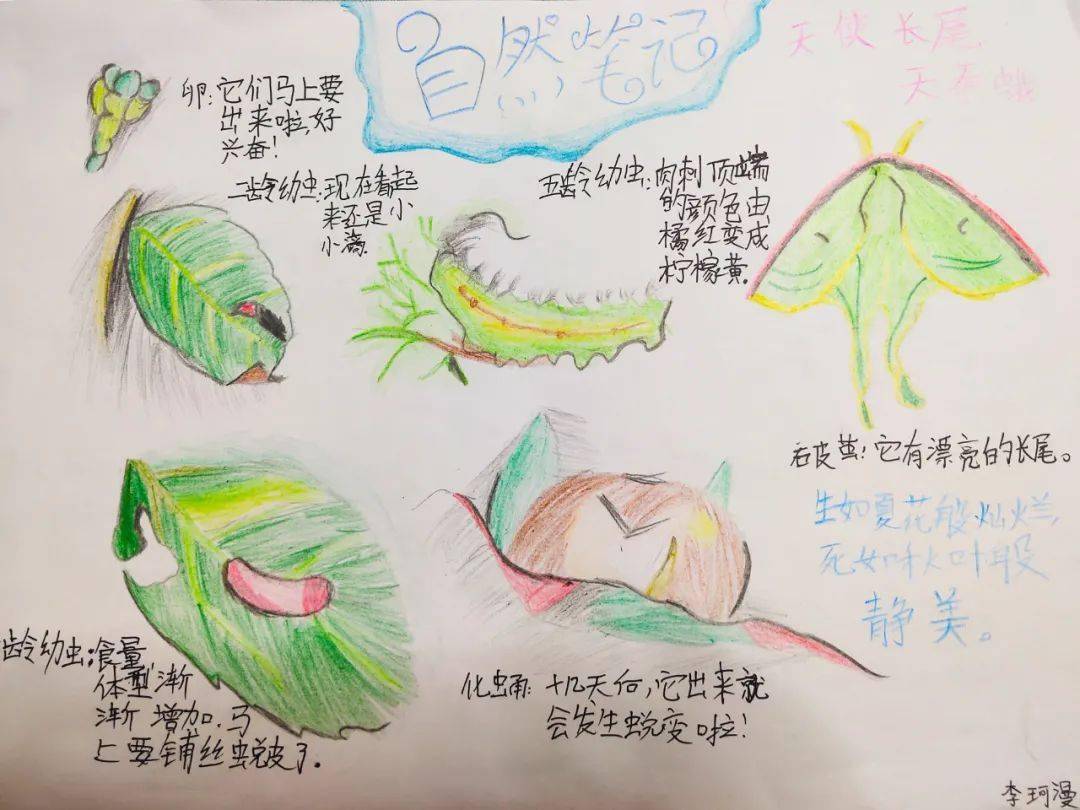 自然笔记
天使长尾
天蚕蛾
卵:它们马上要
出来啦,好
兴奋!
二龄幼虫:现在看起
来还是小
小滴.
五龄幼虫:肉刺顶端
的颜色由
橘红变成
柠檬黄.
破茧!它有漂亮的长尾。
生如夏花般灿烂,
死如秋叶般
静美。
龄幼虫:食量,
体型渐
渐增加.马
上要铺丝蜕皮了.
化蛹:十几天后,它出来就
会发生蜕变啦!
李珂漫